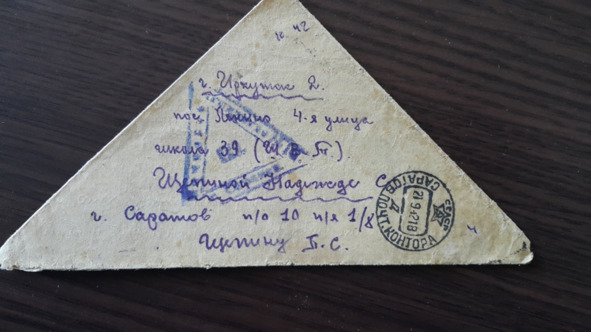 г. Иркутск 2.
пос. Ленина 4-я улица
школа 39 (Ш В П.)
Щепиной Надежде С
г. Саратов п/о 10 п/я 1/8
Щепину Б. С.
САРАТОВ ПОЧТ. КОНТОРА